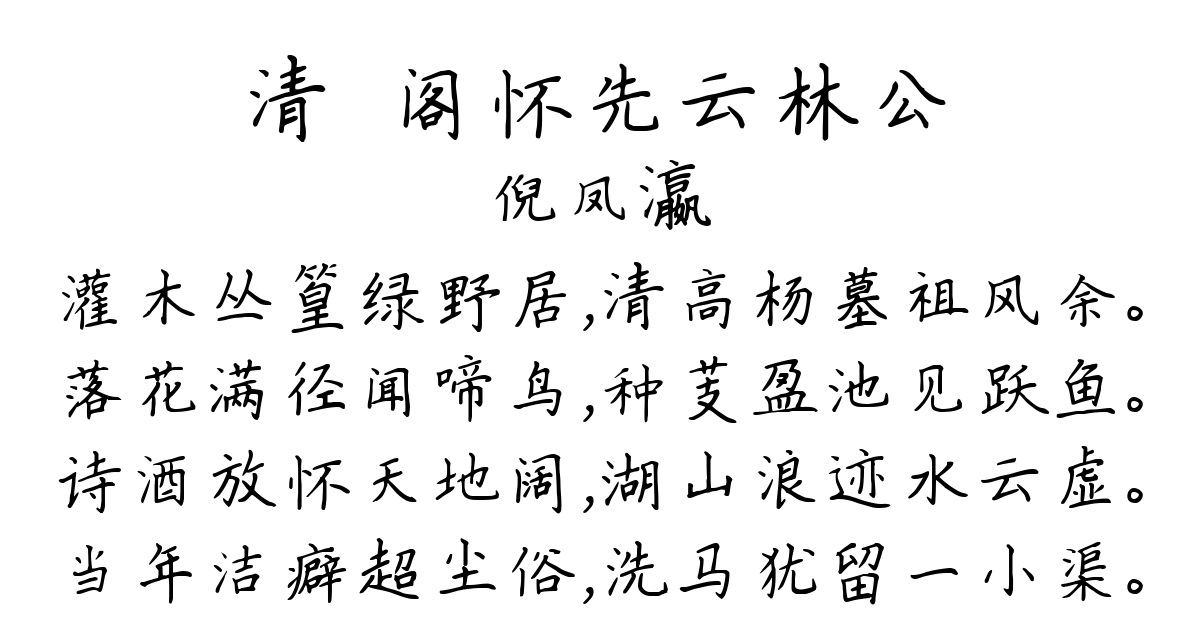 清 阁怀先云林公
倪凤瀛
灌木丛篁绿野居,清高杨墓祖风余。
落花满径闻啼鸟,种芰盈池见跃鱼。
诗酒放怀天地阔,湖山浪迹水云虚。
当年洁癖超尘俗,洗马犹留一小渠。